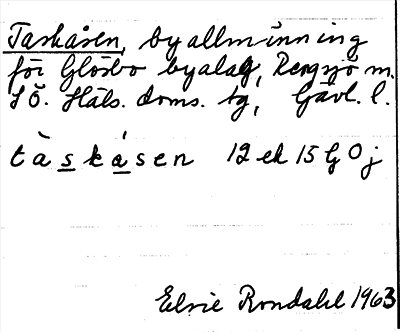 Taskåsen, byallmänning
för Glösbo byalag, Rengsjö m.
S Ö. Häls. doms. tg, Gävl. l.
tàskásen 12 ek 15 G O j
Elsie Rondahl 1963